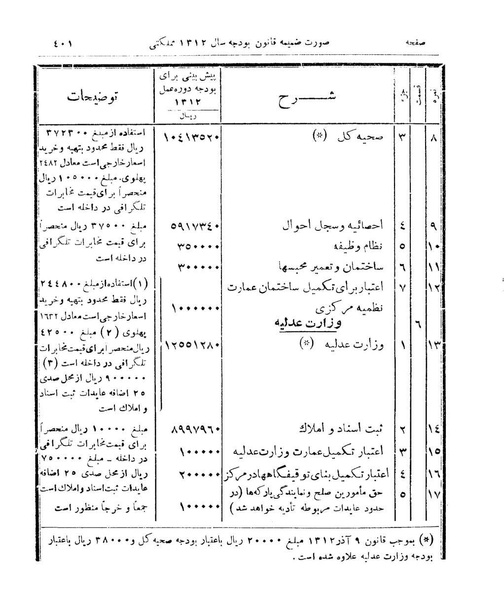 صفحه صورت ضمیمه قانون بودجه سال ۱۳۱۲ مملکتی ۴۰۱
نمره قسمت جزء شرح پیش بینی برای بودجه دوره عمل ۱۳۱۲ ریال توضیحات
۸ ۳ صحیه کل (*) ۱۰۴۱۳۵۲۰
استفاده از مبلغ ۳۷۲۳۰۰
ریال فقط محدود بتهیه و خرید
اسعار خارجی است معادل ۲۴۸۲
پهلوی، مبلغ ۱۰۵۰۰۰ ریال
منحصراً برای قیمت مخابرات
تلگرافی در داخله است
۹ ۴ احصائیه و سجل احوال ۵۹۱۷۳۴۰
مبلغ ۳۷۵۰۰ ریال منحصراً
برای قیمت مخابرات تلگرافی
در داخله است
۱۰ ۵ نظام وظیفه ۳۵۰۰۰۰
۱۱ ۶ ساختمان و تعمیر محبسها ۳۰۰۰۰۰
۱۲ ۷ اعتبار برای تکمیل ساختمان عمارت
نظمیه مرکزی ۱۰۰۰۰۰۰
۶ وزارت عدلیه
۱۳ ۱ وزارت عدلیه (*) ۱۲۵۵۱۲۸۰
(۱) استفاده از مبلغ
۲۴۴۸۰۰ ریال
فقط محدود بتهیه و خرید
اسعار خارجی است معادل ۱۶۳۲
پهلوی (۲) مبلغ ۴۲۵۰۰
ریال منحصراً برای قیمت مخابرات
تلگرافی در داخله است (۳)
۹۰۰۰۰۰ ریال از محل صدی
۲۵ اضافه عایدات ثبت اسناد
و املاک است
۱۴ ۲ ثبت اسناد و املاک ۸۹۹۷۹۶۰
مبلغ ۱۰۰۰۰ ریال منحصراً
برای قیمت مخابرات تلگرافی
در داخله - مبلغ ۷۵۰۰۰۰
ریال از محل صدی ۲۵ اضافه
عایدات ثبت اسناد و املاک است و
جمعاً و خرجاً منظور است
۱۵ ۳ اعتبار تکمیل عمارت وزارت عدلیه ۱۰۰۰۰۰
۱۶ ۴ اعتبار تکمیل بنای توقیفگاهها در مرکز ۲۰۰۰۰۰
۱۷ ۵ حق مأمورین صلح و نمایندگی پارکه‌ها (در
حدود عایدات مربوطه تأدیه خواهد شد) ۱۰۰۰۰۰
(*) بموجب قانون ۹ آذر ۱۳۱۲ مبلغ ۲۰۰۰۰ ریال باعتبار بودجه صحیه کل و ۳۸۰۰۰ ریال باعتبار
بودجه وزارت عدلیه علاوه شده است .